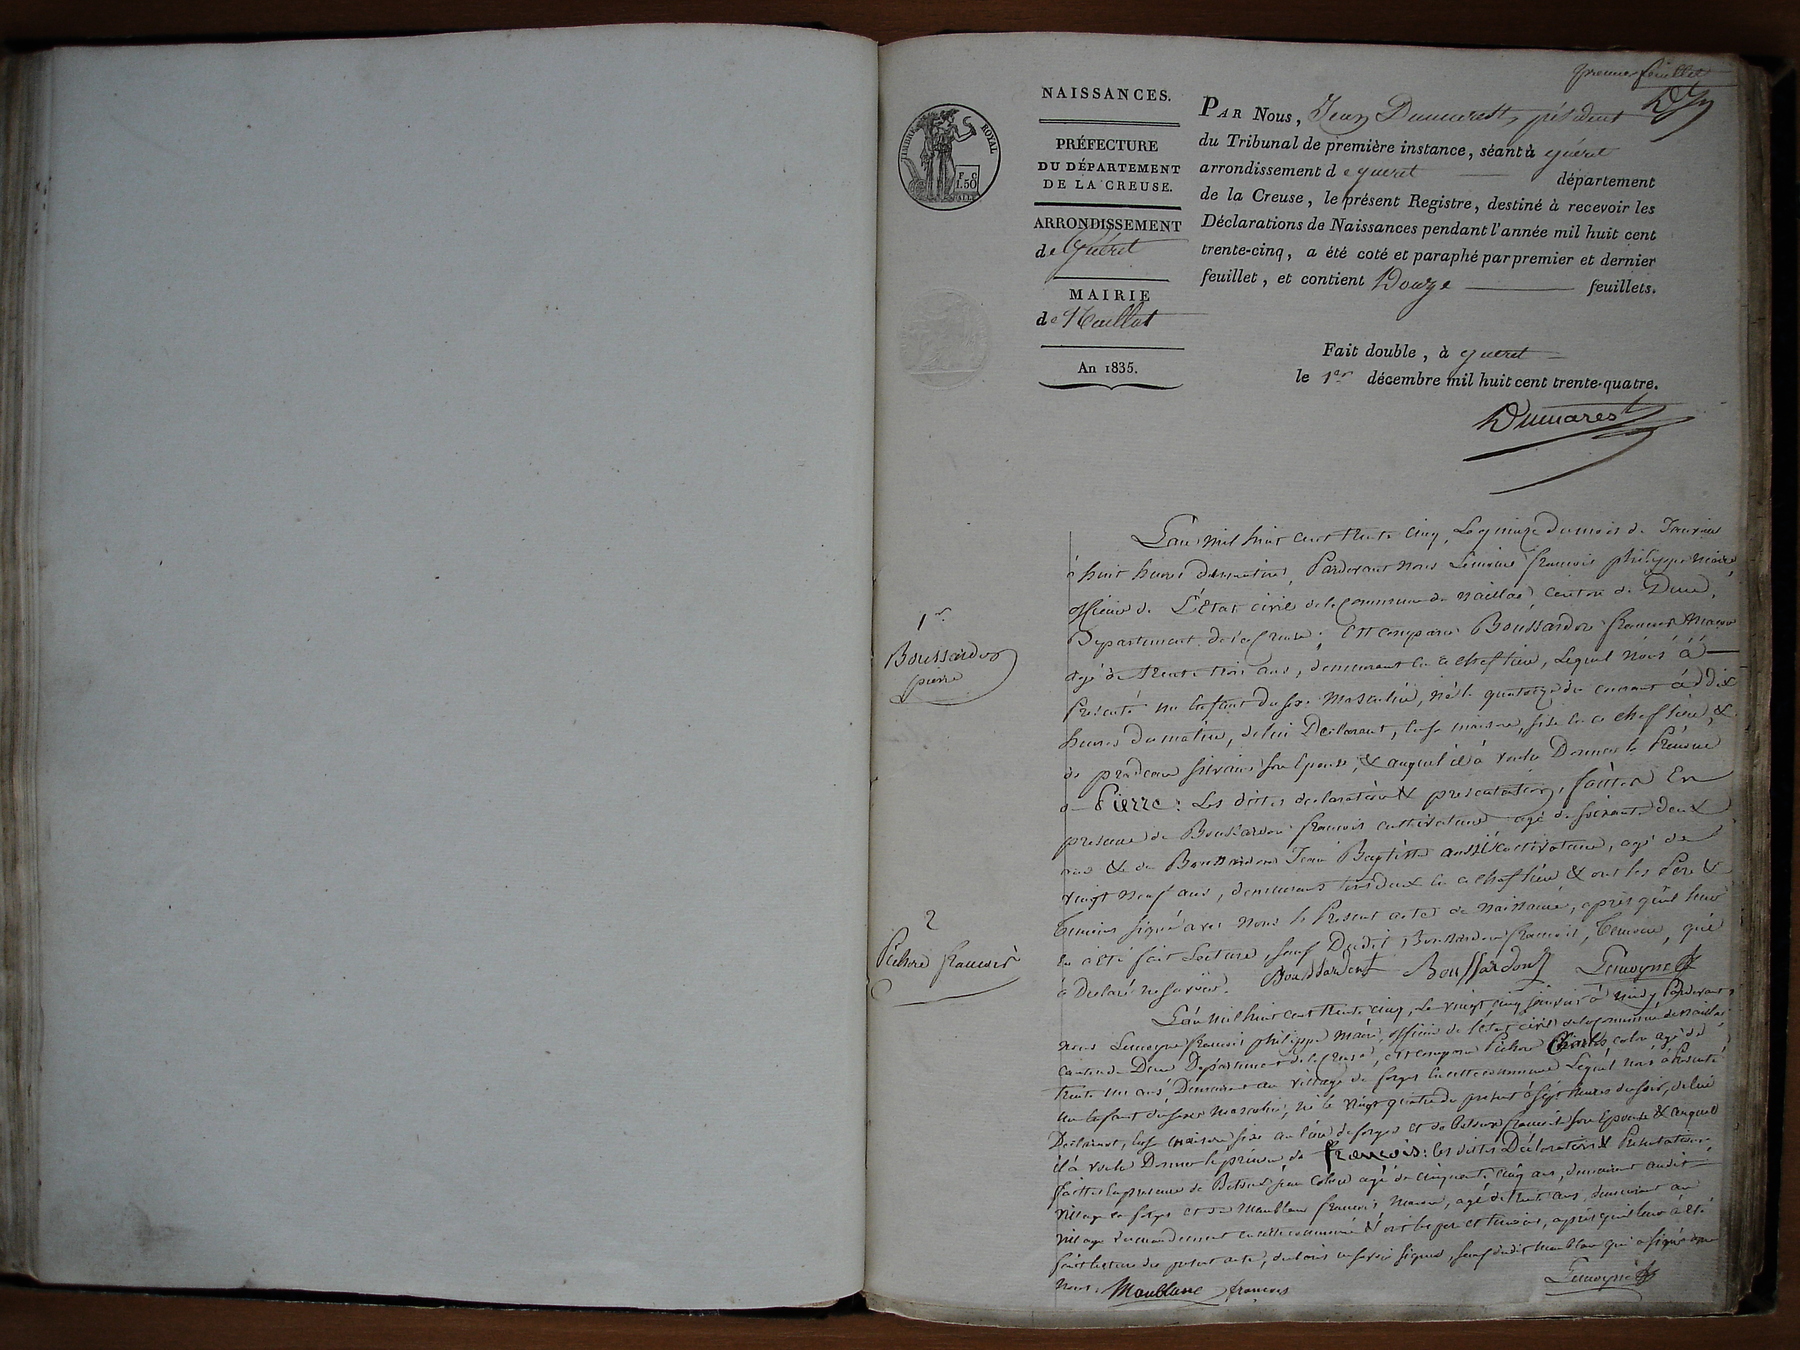 premier feuillet
NAISSANCES.
PRÉFECTURE
DU DÉPARTEMENT
DE LA CREUSE.
ARRONDISSEMENT
de Guéret
MAIRIE
de Naillat
An 1835.
TIMBRE ROYAL
F. C.
1.50
PAR Nous, Jean Dumarest, président
du Tribunal de première instance, séant à guéret
arrondissement de gueret département
de la Creuse, le présent Registre, destiné à recevoir les
Déclarations de Naissances pendant l'année mil huit cent
trente-cinq, a été coté et paraphé par premier et dernier
feuillet, et contient Douze feuillets.
Fait double, à gueret
le 1er décembre mil huit cent trente-quatre.
Dumarest
1er
Boussardon
pierre
L'an mil huit cent trente cinq, Le quinze du mois de Janvier
à huit heures du matin, Pardevant nous Lemoine françois philippe maire
officier de L'Etat civil de la Commune de naillat canton de Dun,
Département de la Creuse; est comparu Boussardon françois Maçon
agé de trente trois ans, demeurant en ce chef lieu, Lequel nous à
Présenté un Enfant du sexe Masculin, né le quatorze du courant à dix
heures du matin, de lui Déclarant, en sa maison, sise en ce chef lieu, &
de pradeau silvaine son Epouse, & auquel il à voulu Donner le Prénom
de Pierre: Les dittes declaration & presentation, faittes En
presence de Boussardon françois cultivateur agé de soixante deux
ans & de Boussardon Jean Baptiste aussi Cultivateur, agé de
vingt neuf ans, demeurant tous deux en ce chef lieu & ont les Père &
temoins signé avec nous le Présent acte de naissance, après qu'il leur
en à été fait Lecture, sauf Dudit Boussardon françois, Temoin, qui
à Declaré ne savoir. Boussardont Boussardon Lemoyne
2
Pichon françois
L'an mil huit cent trente cinq, Le vingt cinq janvier à midy, Pardevant
nous Lemoyne françois philippe Maire, officier de l'Etat civil de la Commune de naillat
canton de Dun Département de la Creuse, est comparu Pichon Charles colon agé de
trente un ans, Demeurant au village de forges en cette commune Lequel nous à Présenté
un Enfant du sexe Masculin, né le vingt quatre du présent à sept heures du soir, de lui
Déclarant, en sa maison sise au lieu de forges et de françoise son Epouse & auquel
il à voulu Donner le prénom de françois: les dittes Déclaration & Présentation
faittes En presence de jean Colon agé de cinquante cinq ans, demeurant audit
village de forges et de Maublanc françois Maçon, agé de trente ans, demeurant au
village en cette commune & ont les père et temoins, après qu'il leur à été
fait lecture du présent acte, déclaré ne savoir signer, sauf dudit Maublanc qui a signé avec
nous. Maublanc françois Lemoyne